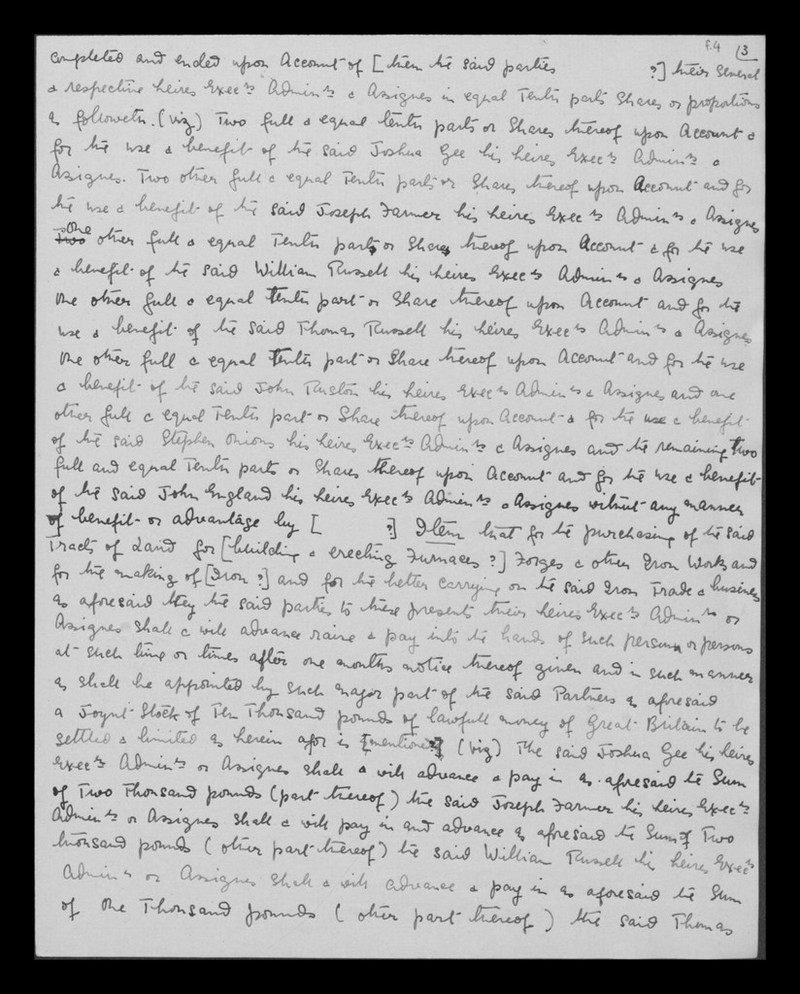 f.4 (3
Completed and ended upon Account of [them the said parties ?] their Several
& respective heires Execrs Adminrs & Assignes in equal Tenth parts Shares or proportions
as followeth. (viz) Two full & equal tenth parts or Shares thereof upon Account &
for the use & benefit of the said Joshua Gee his heires Execrs Adminrs &
Assignes. Two other full & equal Tenth parts or Shares thereof upon Account and for
the use & benefit of the said Joseph Farmer his heires Execrs Adminrs & Assignes
Two One other full & equal Tenth parts or Shares thereof upon Account & for the use
& benefit of the said William Russell his heires Execrs Adminrs & Assignes
One other full & equal Tenth part or Share thereof upon Account and for the
use & benefit of the said Thomas Russell his heires Execrs Adminrs & Assignes
One other full & equal Tenth part or Share thereof upon Account and for the use
& benefit of the said John Ruston his heires Execrs Adminrs & Assignes and one
other full & equal Tenth part or Share thereof upon Account & for the use & benefit
of the said Stephen Onions his heires Execrs Adminrs & Assignes and the remaining two
full and equal Tenth parts or Shares thereof upon Account and for the use & benefit
of the said John England his heires Execrs Adminrs & Assignes without any manner
of benefit or advantage by [ ?] Item that for the purchasing of the said
Tracts of Land for [building & erecting Furnaces ?] Forges & other Iron Works and
for the making of [Iron ?] and for the better carrying on the said Iron Trade & business
as aforesaid they the said parties to these presents their heires Execrs Adminrs or
Assignes shall & will advance raise & pay into the hands of such person or persons
at such time or times after one months notice thereof given and in such manner
as shall be appointed by such major part of the said Partners as aforesaid
a Joynt Stock of Ten Thousand pounds of lawfull money of Great Britain to be
settled & limited as herein after is [mentioned?] (viz) The said Joshua Gee his heires
Execrs Adminrs or Assignes shall & will advance & pay in as aforesaid the Sum
of Two Thousand pounds (part thereof) the said Joseph Farmer his heires Execrs
Adminrs or Assignes shall & will pay in and advance as aforesaid the Sum of Two
thousand pounds (other part thereof) the said William Russell his heires Execrs
Adminrs or Assignes shall & will advance & pay in as aforesaid the Sum
of One Thousand pounds (other part thereof) the said Thomas